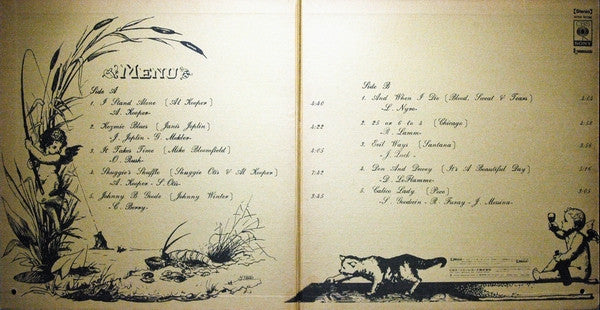 Menu
Side A
1. I Stand Alone (Al Kooper)
A. Kooper 3:40
2. Kozmic Blues (Janis Joplin)
J. Joplin - G. Mekler 4:22
3. It Takes Time (Mike Bloomfield)
O. Rush 3:05
4. Shuggie's Shuffle (Shuggie Otis & Al Kooper)
A. Kooper - S. Otis 7:42
5. Johnny B. Goode (Johnny Winter)
C. Berry 3:45
Side B
1. And When I Die (Blood, Sweat & Tears)
L. Nyro 4:04
2. 25 or 6 to 4 (Chicago)
R. Lamm
3. Evil Ways (Santana)
J. Lock
4. Don And Dewey (It's A Beautiful Day)
D. LaFlamme
5. Calico Lady (Poco)
S. Goodwin - R. Furay - J. Messina
Stereo
SONY